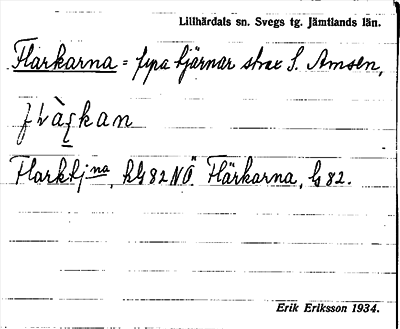 Lillhärdals sn. Svegs tg. Jämtlands län.
Flärkarna = fyra tjärnar strax S. Amsen,
Flarktjna, kG 82 NÖ. Flärkarna, G 82.
Erik Eriksson 1934.